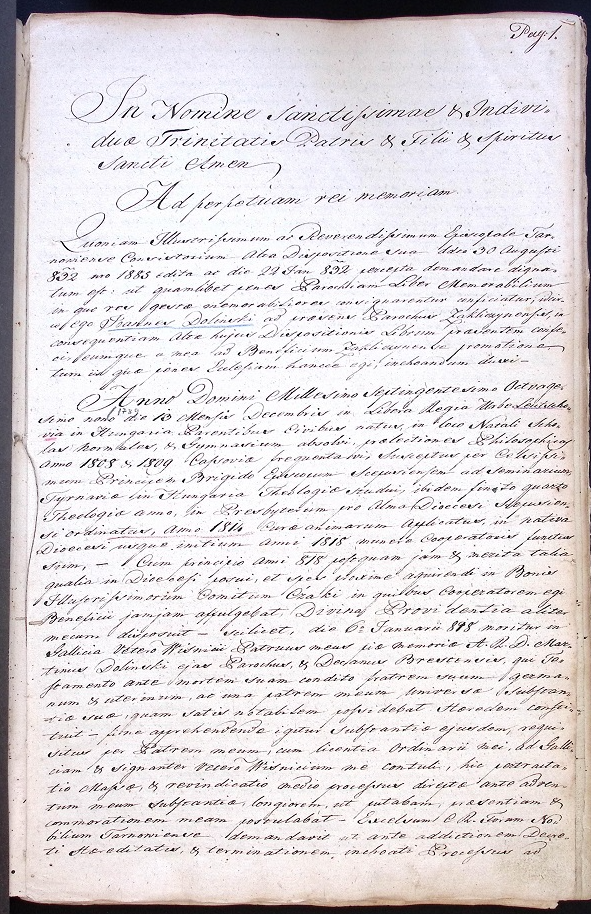 Pag: 1.
In Nomine Sanctissimae & Indivi-
duae Trinitatis Patris & Filii & Spiritus
Sancti Amen
Ad perpetuam rei memoriam
Quoniam Illustrissimum ac Reverendissimum Episcopale Tar-
noviense Consistorium Alta Dispositione sua ddto 30 Augusti
832 nro 1885 edita ac die 22 Jan 832 percepta demandare digna-
tum est: ut quamlibet penes Parochiam Liber Memorabilium
in quo res gestae memorabiliores consignarentur conficiatur, idcir-
co ego Joannes Dolinski ad praesens Parochus Zakliczynensis, in
consequentiam Altae hujus Dispositionis Librum praesentem confe-
ci, eumque a mea ad Beneficium promotione
tum in qua penes Eclesiam hancce egi, inchoandum duxi —
Anno Domini Millesimo Septingentesimo Octuage-
simo nono die 13 Mensis Decembris in Libera Regia Urbe Leutscho-
1789
via in Hungaria Parentibus Civibus natus, in loco Natali Scho-
las Normales, & Gymnasium absolvi, praelectiones Philosophicas
Anno 1808 & 1809 Cassoviae frequentavi, Susceptus per Celsissi-
mum Principem Brigido Episcopum Scepusiensem ad Seminarium
Tyrnaviae in Hungaria Theologiae studui, ibidem finito quarto
Theologiae anno, in Presbyterum pro Alma Dioecesi Scepusien-
si ordinatus, Anno 1814 Curae animarum Applicatus, in nativa
Dioecesi usque initium Anni 1818 munere Cooperatoris functus
sum, — Cum principio Anni 818 postquam jam & merita talia
qualia in Diocesi posui, et spes proxime aquirendi in Bonis
Illustrissimorum Comitum Czaki in quibus Cooperatorem egi
Beneficii jamjam affulgebat, Divina Providentia aliter
mecum disposuit — scilicet, die 6 Januarii 818 moritur in
Gallicia Vetero Wisnicii Patruus meus piae memoriae A. R. D. Mar-
tinus Dolinski ejas Parochus, & Decanus Brestensis, qui Te-
stamento ante mortem suam condito fratrem suum germa-
num & uterinum, ac una patrem meum universae Substan-
tiae suae, quam satis notabilem possidebat Haeredem consti-
tuit — pro apprehendenda igitur Substantia ejusdem, requi-
situs per Patrem meum, cum licentia Ordinarii mei ad Galli-
ciam & signanter Vetero Wisnicium me contuli, hic pertracta-
tio Massae, & revindicatio medio processus directe ante adven-
tum meum Substantiae, longiorem, ut putabam, praesentiam &
commorationem meam postulabat — Excelsum C. R. Forum No-
bilium Tarnoviense demandavit ut ante addictionem Decre-
ti Haereditatis, & terminationem, inchoati Processus ad